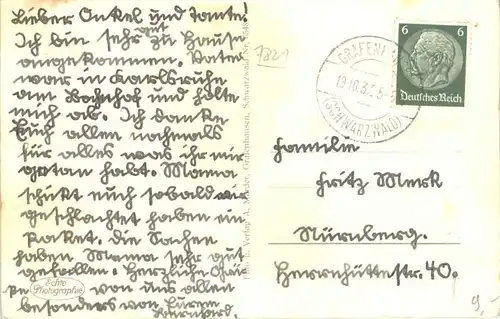 Lieber Onkel und Tante!
Ich bin sehr gut zu Hause
angekommen. Vater
war in Karlsruhe
am Bahnhof und holte
mich ab. Ich danke
Euch allen nochmals
für alles was ihr mir
getan habt. Mama
schükt euch sobald wir
geschlachtet haben ein
Paket. Die Sachen
haben Mama sehr gut
gefallen. Herzliche Grüs-
se von uns allen
besonders von Eurem
Bernhard.
Echte
Photographie
Verlag A. Grafenhausen, Schwarzwald
1821
GRAFENH
19.10.37
(SCHWARZWALD)
6 6
Deutsches Reich
Familie
Fritz Merk
Nürnberg.
Herrnhüttestr. 40.
9.-